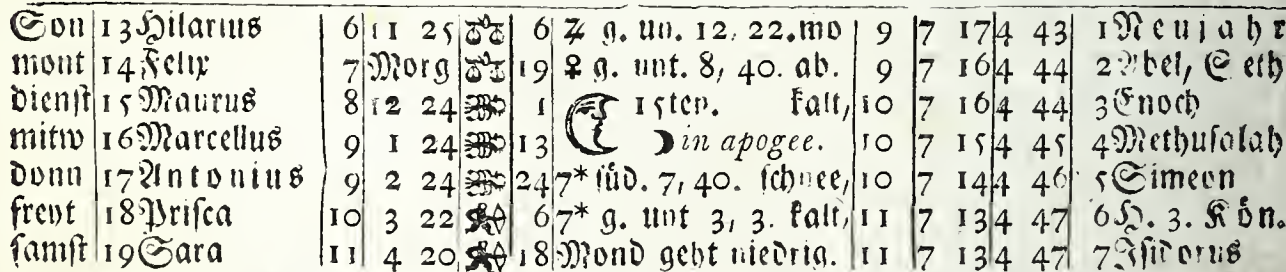 Son 13 Hilarius 6 11 25 6 ♃ g. un. 12, 22. mo 9 7 17 4 43 1 Neujahr
mont 14 Felix 7 Morg 19 ♀ g. unt. 8, 40. ab. 9 7 16 4 44 2 Abel, Seth
dienst 15 Maurus 8 12 24 1 15ten. kalt, 10 7 16 4 44 3 Enoch
mitw 16 Marcellus 9 1 24 13 ☽ in apogee. 10 7 15 4 45 4 Methusalah
donn 17 Antonius 9 2 24 24 7* süd. 7, 40. schnee, 10 7 14 4 46 5 Simeon
freyt 18 Prisca 10 3 22 6 7* g. unt 3, 3. kalt, 11 7 13 4 47 6 H. 3. Kön.
samst 19 Sara 11 4 20 18 Mond geht niedrig. 11 7 13 4 47 7 Isidorus